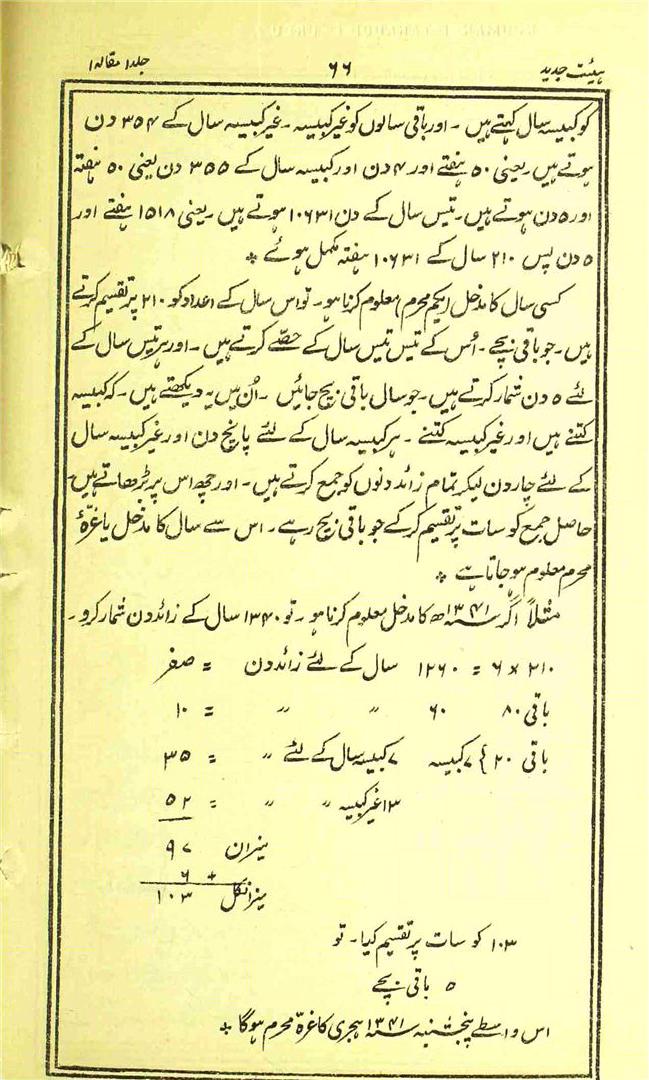 ہیئت جدید ۶۶ جلد ۱ مقالہ ۱
کو کبیسہ سال کہتے ہیں ۔ اور باقی سالوں کو غیر کبیسہ ۔ غیر کبیسہ سال کے ۳۵۴ دن
ہوتے ہیں ۔ یعنی ۵۰ ہفتے اور ۴ دن اور کبیسہ سال کے ۳۵۵ دن یعنی ۵۰ ہفتہ
اور ۵ دن ہوتے ہیں ۔ تیس سال کے دن ۱۰۶۳۱ ہوتے ہیں ۔ یعنی ۱۵۱۸ ہفتے اور
۵ دن پس ۲۱۰ سال کے ۱۰۶۳۱ ہفتہ مکمل ہوئے *
کسی سال کا مدخل (یکم محرم) معلوم کرنا ہو ۔ تو اس سال کے اعداد کو ۲۱۰ پر تقسیم کرتے
ہیں ۔ جو باقی بچے ۔ اُس کے تیس تیس سال کے حصّے کرتے ہیں ۔ اور ہر تیس سال کے
لئے ۵ دن شمار کرتے ہیں ۔ جو سال باقی بچ جائیں ۔ اُن میں یہ دیکھتے ہیں ۔ کہ کبیسہ
کتنے ہیں اور غیر کبیسہ کتنے ۔ ہر کبیسہ سال کے لئے پانچ دن اور غیر کبیسہ سال
کے لئے چار دن لیکر تمام زائد دنوں کو جمع کرتے ہیں ۔ اور چھ اس پر بڑھاتے ہیں
حاصل جمع کو سات پر تقسیم کر کے جو باقی بچ رہے ۔ اس سے سال کا مدخل یا غرّۂ
محرم معلوم ہو جاتا ہے *
مثلاً اگر سنہ ۱۳۴۱ھ کا مدخل معلوم کرنا ہو ۔ تو ۱۳۴۰ سال کے زائد دن شمار کرو ۔
۲۱۰ × ۶ = ۱۲۶۰ سال کے لئے زائد دن = صفر
باقی ۸۰ ۶۰ " " = ۱۰
باقی ۲۰ { ۷ کبیسہ ۷ کبیسہ سال کے لئے " = ۳۵
۱۳ غیر کبیسہ " " = ۵۲
میزان ۹۷
+ ۶
میزانکل ۱۰۳
۱۰۳ کو سات پر تقسیم کیا ۔ تو
۵ باقی بچے
اس واسطے پنجشنبہ سنہ ۱۳۴۱ ہجری کا غرّہ محرم ہوگا *